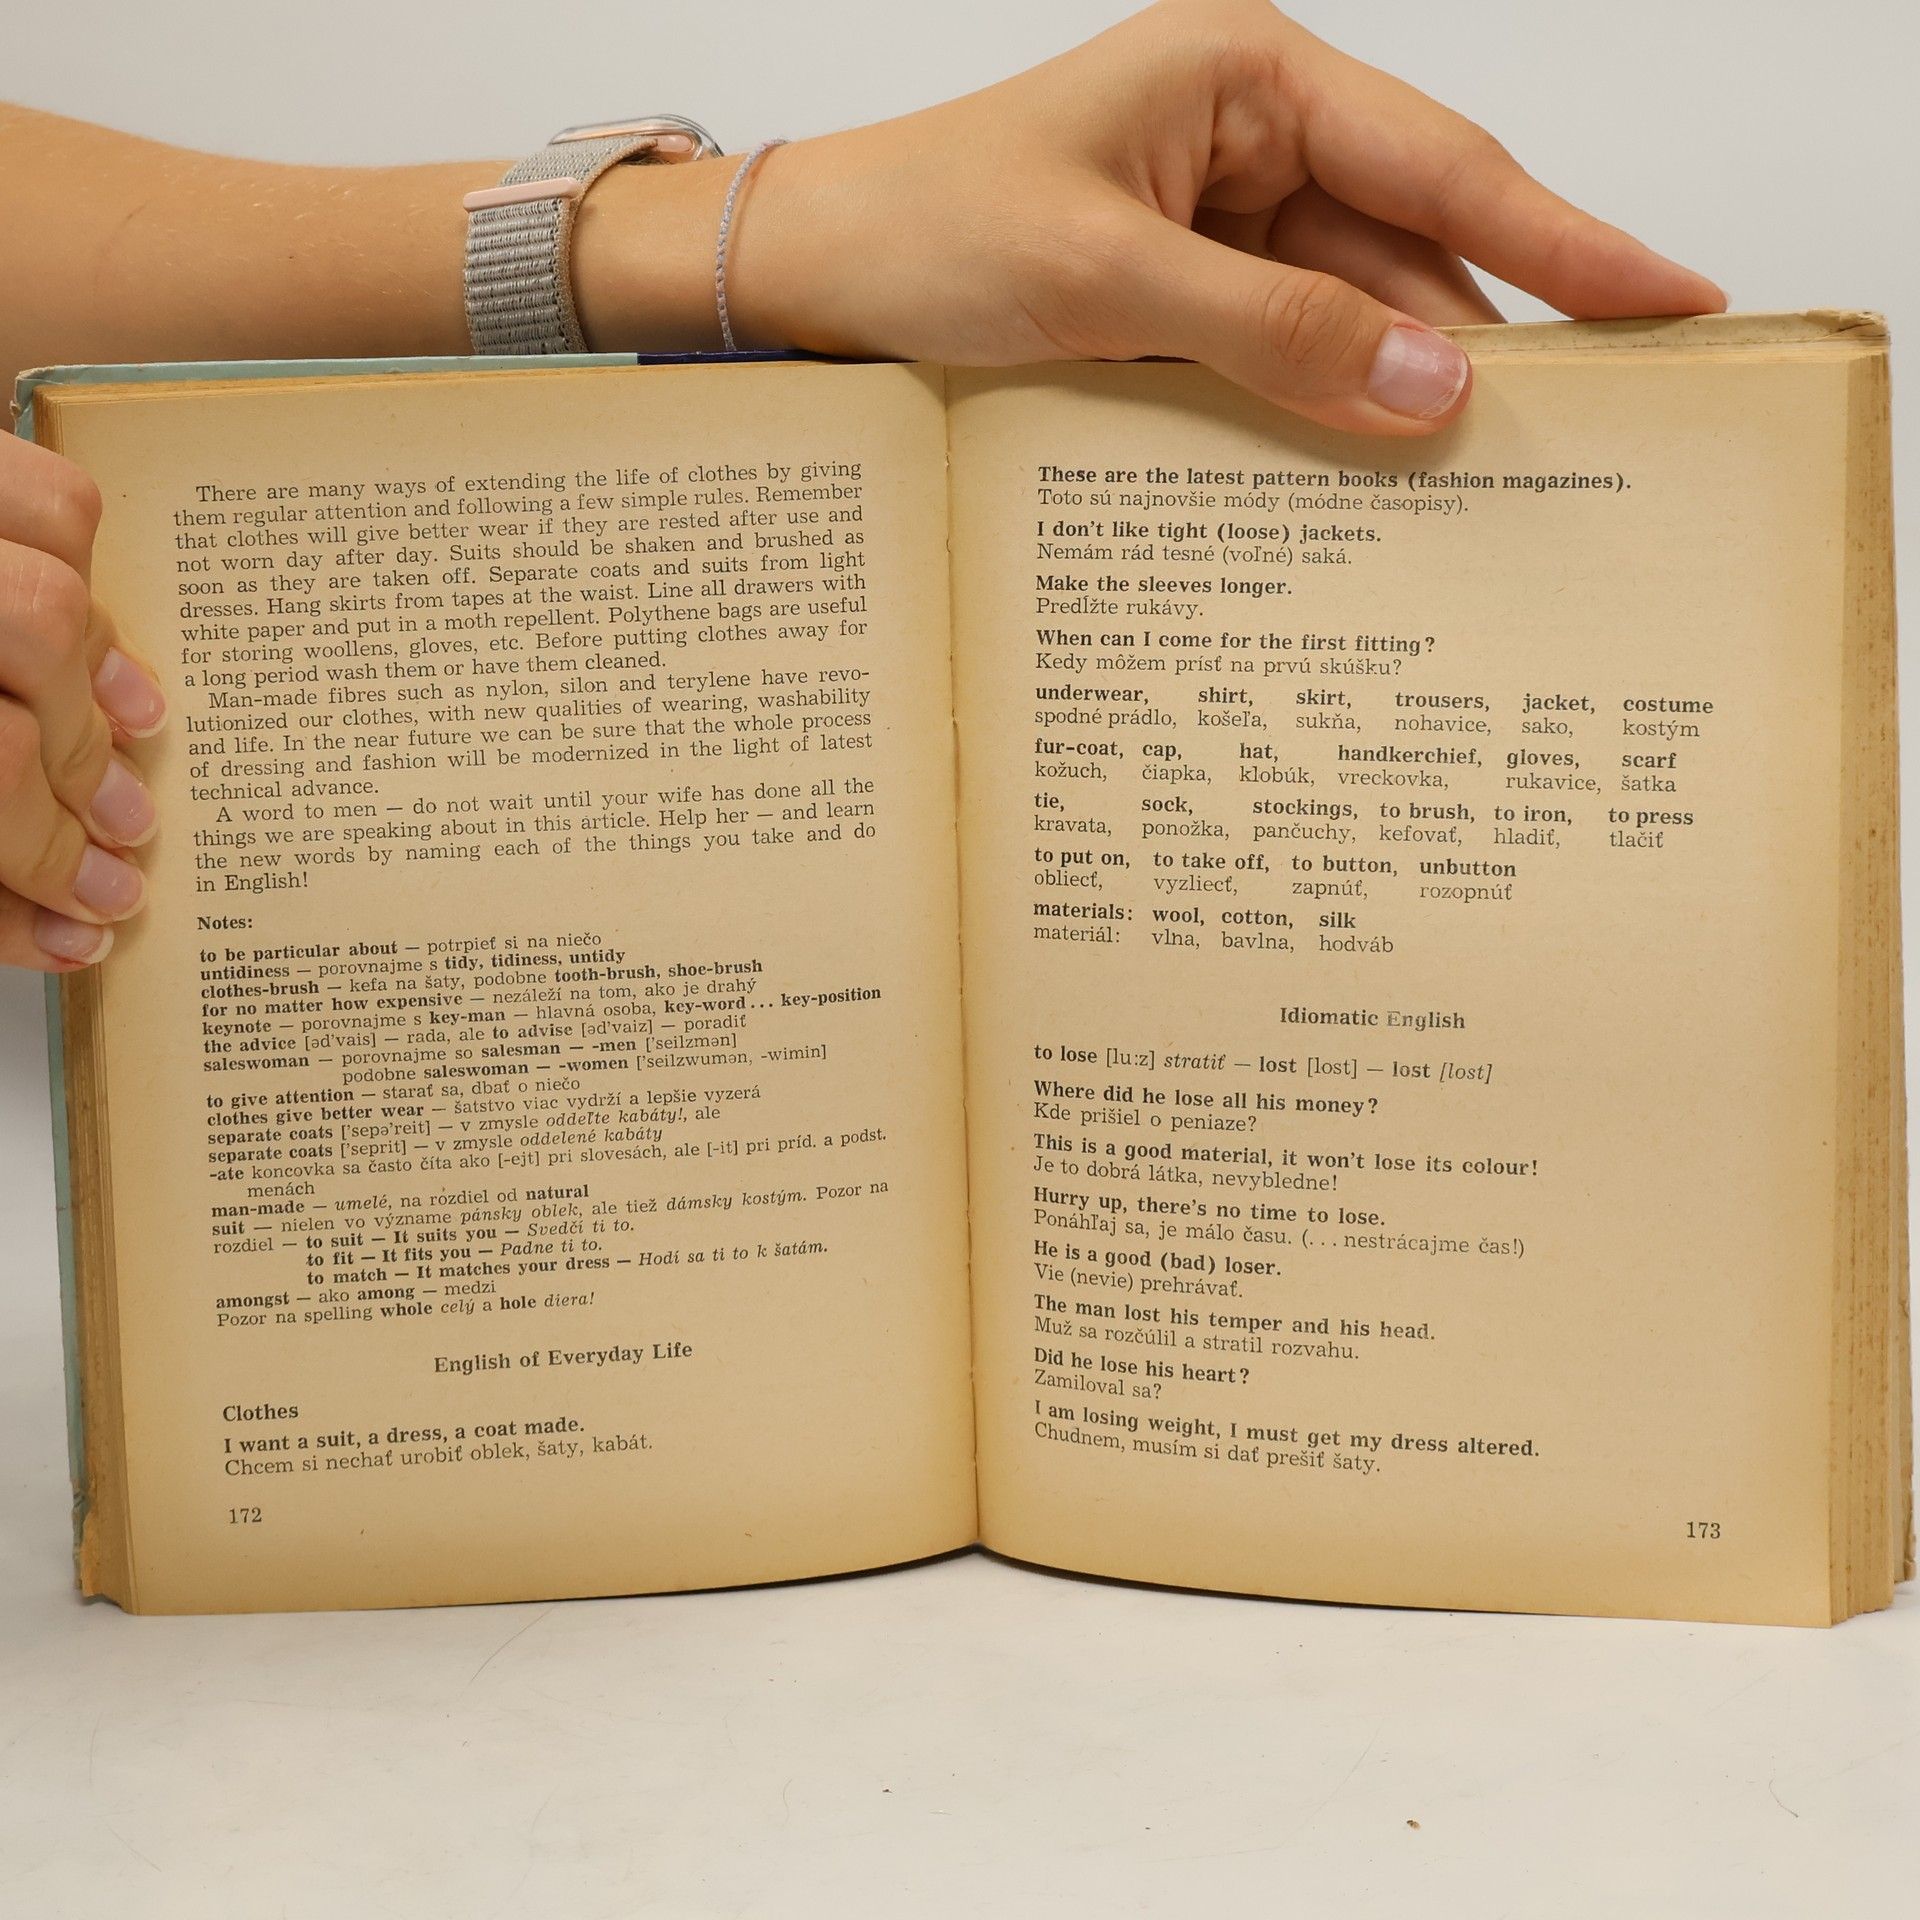 There are many ways of extending the life of clothes by giving
them regular attention and following a few simple rules. Remember
that clothes will give better wear if they are rested after use and
not worn day after day. Suits should be shaken and brushed as
soon as they are taken off. Separate coats and suits from light
dresses. Hang skirts from tapes at the waist. Line all drawers with
white paper and put in a moth repellent. Polythene bags are useful
for storing woollens, gloves, etc. Before putting clothes away for
a long period wash them or have them cleaned.
Man-made fibres such as nylon, silon and terylene have revo-
lutionized our clothes, with new qualities of wearing, washability
and life. In the near future we can be sure that the whole process
of dressing and fashion will be modernized in the light of latest
technical advance.
A word to men — do not wait until your wife has done all the
things we are speaking about in this article. Help her — and learn
the new words by naming each of the things you take and do
in English!
Notes:
to be particular about — potrpieť si na niečo
untidiness — porovnajme s tidy, tidiness, untidy
clothes-brush — kefa na šaty, podobne tooth-brush, shoe-brush
for no matter how expensive — nezáleží na tom, ako je drahý
keynote — porovnajme s key-man — hlavná osoba, key-word... key-position
the advice [əd'vais] — rada, ale to advise [əd'vaiz] — poradiť
saleswoman — porovnajme so salesman — -men ['seilzmən]
podobne saleswoman — -women ['seilzwumən, -wimin]
to give attention — starať sa, dbať o niečo
clothes give better wear — šatstvo viac vydrží a lepšie vyzerá
separate coats ['sepə'reit] — v zmysle oddeľte kabáty!, ale
separate coats ['seprit] — v zmysle oddelené kabáty
-ate koncovka sa často číta ako [-ejt] pri slovesách, ale [-it] pri príd. a podst.
menách
man-made — umelé, na rozdiel od natural
suit — nielen vo význame pánsky oblek, ale tiež dámsky kostým. Pozor na
rozdiel — to suit — It suits you — Svedčí ti to.
to fit — It fits you — Padne ti to.
to match — It matches your dress — Hodí sa ti to k šatám.
amongst — ako among — medzi
Pozor na spelling whole celý a hole diera!
English of Everyday Life
Clothes
I want a suit, a dress, a coat made.
Chcem si nechať urobiť oblek, šaty, kabát.
172
These are the latest pattern books (fashion magazines).
Toto sú najnovšie módy (módne časopisy).
I don't like tight (loose) jackets.
Nemám rád tesné (voľné) saká.
Make the sleeves longer.
Predĺžte rukávy.
When can I come for the first fitting?
Kedy môžem prísť na prvú skúšku?
underwear, shirt, skirt, trousers, jacket, costume
spodné prádlo, košeľa, sukňa, nohavice, sako, kostým
fur-coat, cap, hat, handkerchief, gloves, scarf
kožuch, čiapka, klobúk, vreckovka, rukavice, šatka
tie, sock, stockings, to brush, to iron, to press
kravata, ponožka, pančuchy, kefovať, hladiť, tlačiť
to put on, to take off, to button, unbutton
obliecť, vyzliecť, zapnúť, rozopnúť
materials: wool, cotton, silk
materiál: vlna, bavlna, hodváb
Idiomatic English
to lose [lu:z] stratiť — lost [lost] — lost [lost]
Where did he lose all his money?
Kde prišiel o peniaze?
This is a good material, it won't lose its colour!
Je to dobrá látka, nevybledne!
Hurry up, there's no time to lose.
Ponáhľaj sa, je málo času. (... nestrácajme čas!)
He is a good (bad) loser.
Vie (nevie) prehrávať.
The man lost his temper and his head.
Muž sa rozčúlil a stratil rozvahu.
Did he lose his heart?
Zamiloval sa?
I am losing weight, I must get my dress altered.
Chudnem, musím si dať prešiť šaty.
173